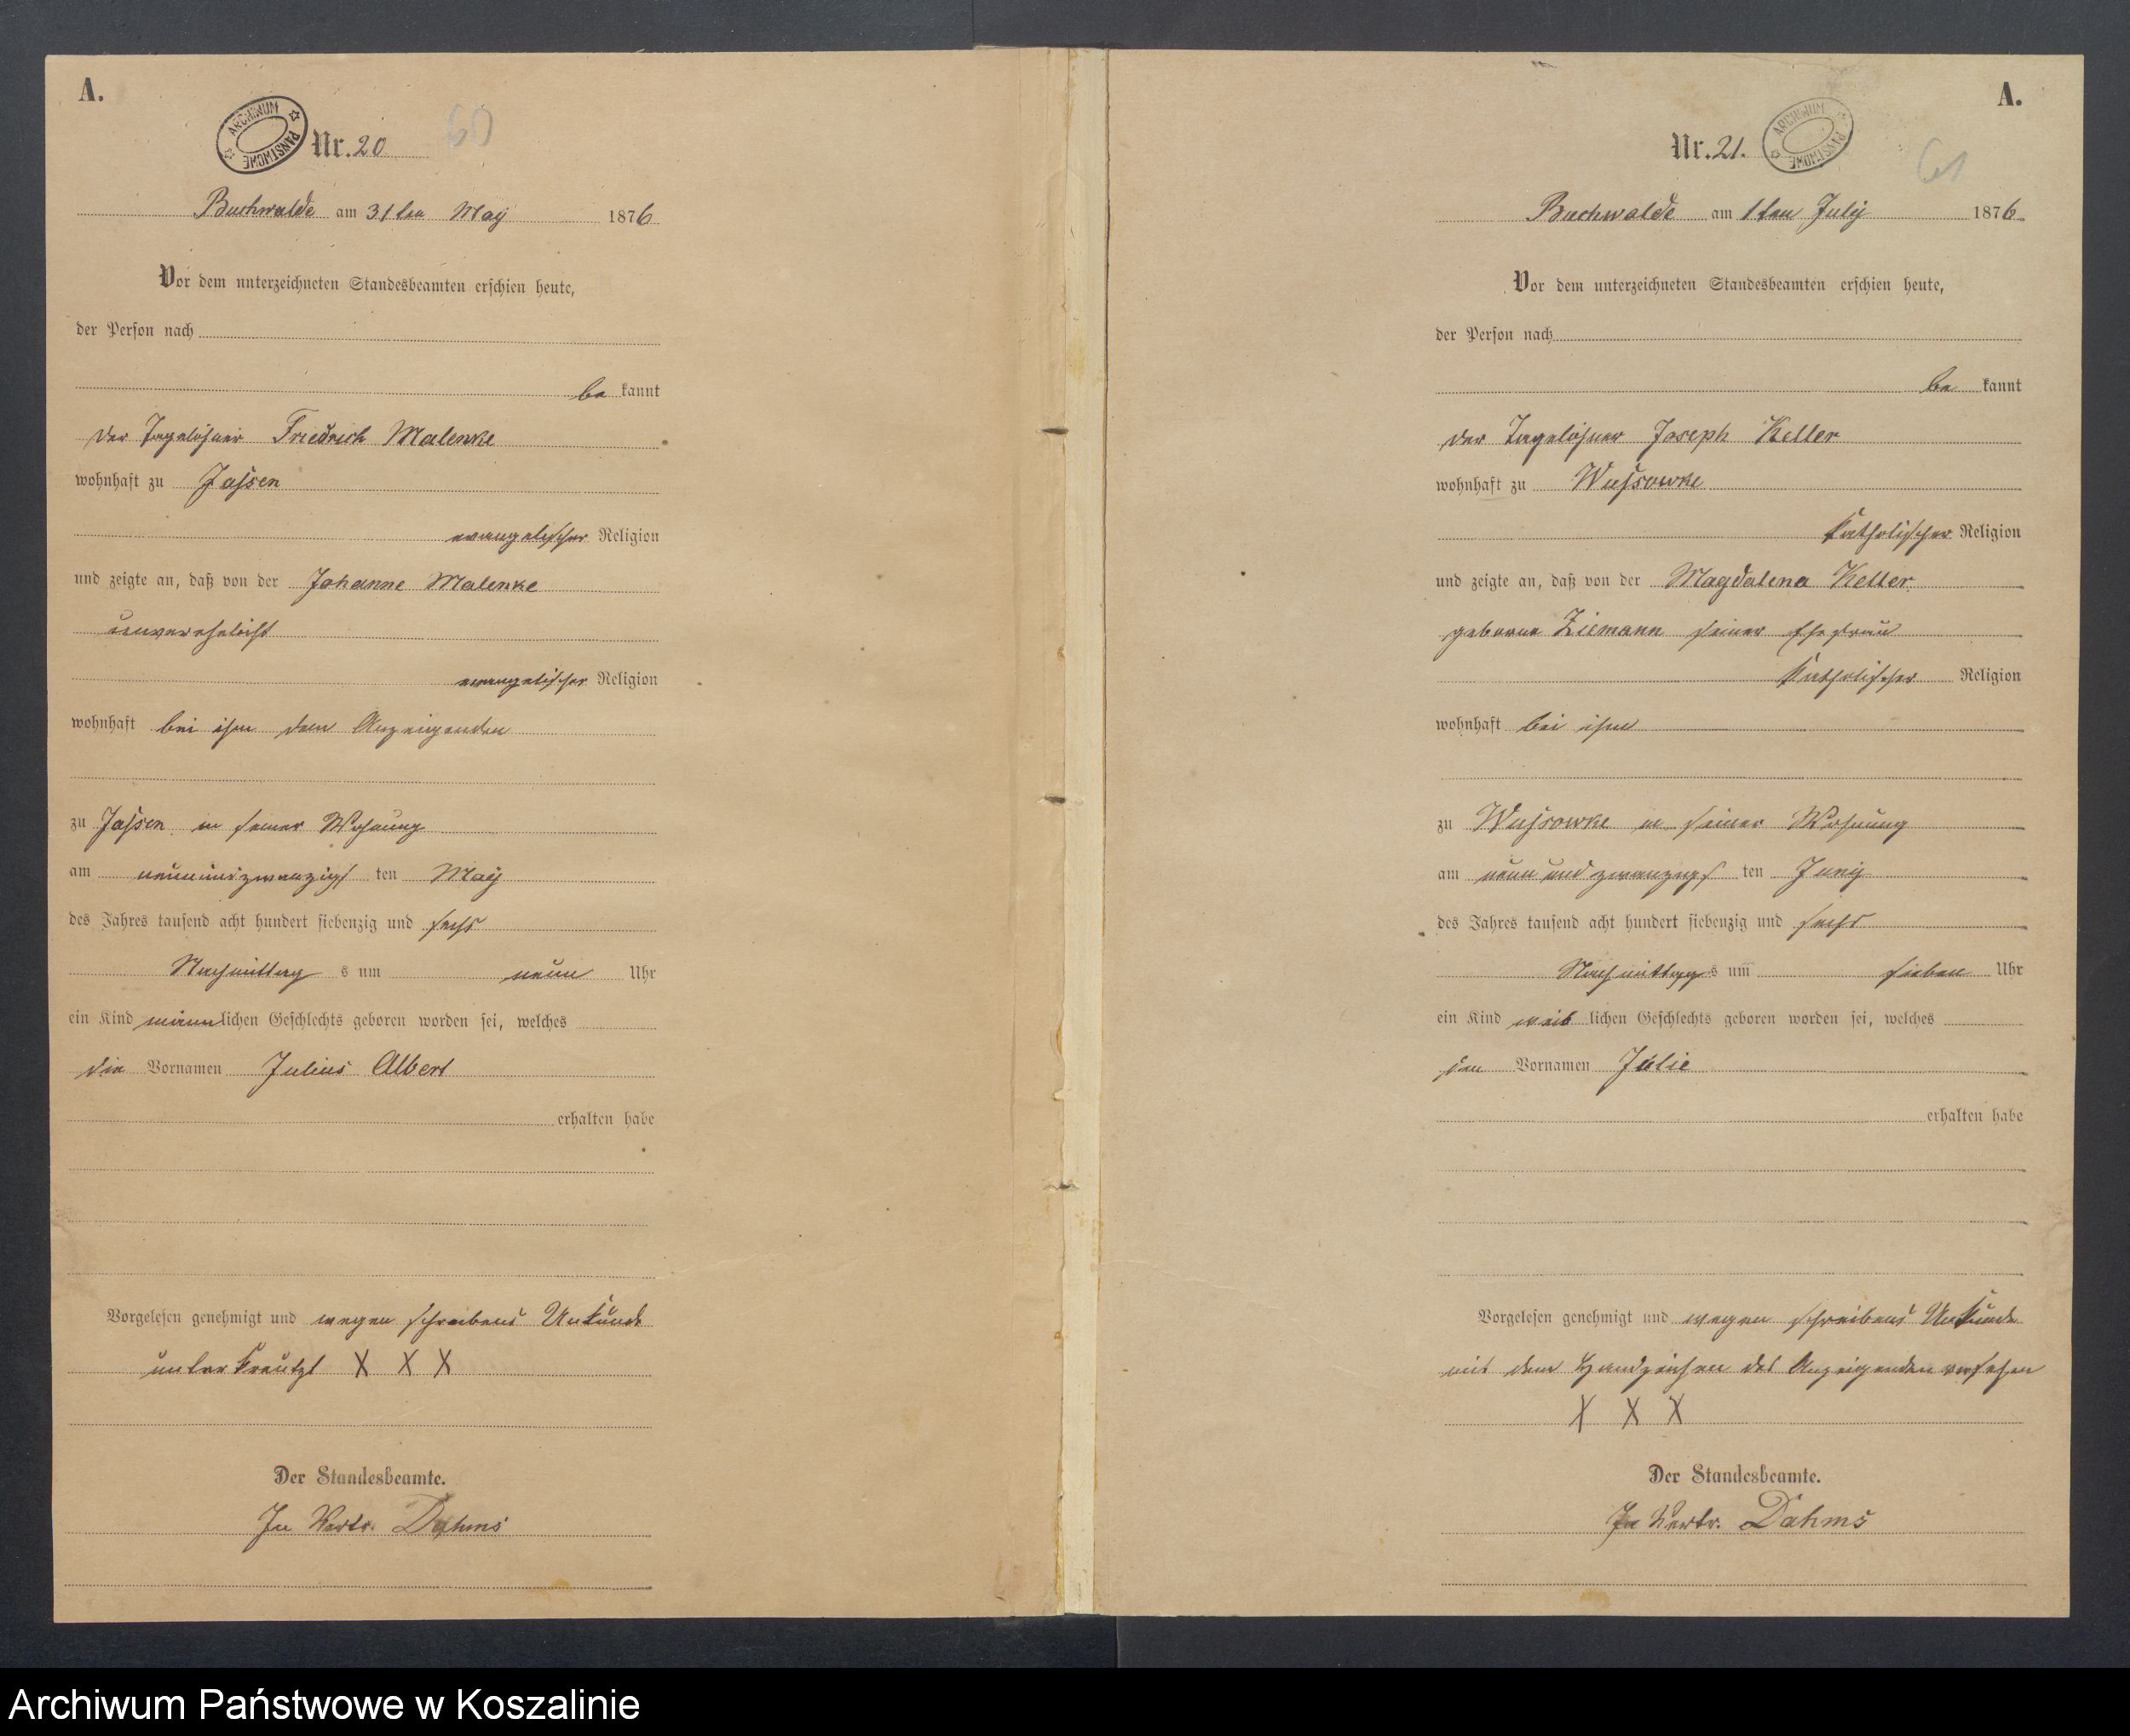 A.
ARCHIWUM PAŃSTWOWE
Nr. 20
60
Buchwalde am 31ten May 1876
Vor dem unterzeichneten Standesbeamten erschien heute,
der Person nach
be kannt
der Tagelöhner Friedrich Malenke
wohnhaft zu Jassen
evangelischer Religion
und zeigte an, daß von der Johanne Malenke
unverehelicht
evangelischer Religion
wohnhaft bei ihm dem Anzeigenden
zu Jassen in seiner Wohnung
am neunundzwanzigs ten May
des Jahres tausend acht hundert siebenzig und sechs
Nachmittag s um neun Uhr
ein Kind männlichen Geschlechts geboren worden sei, welches
die Vornamen Julius Albert
erhalten habe
Vorgelesen genehmigt und wegen schreibens Unkunde
unterkreutzt X X X
Der Standesbeamte.
In Vertr. Dahms
A.
Nr. 21.
ARCHIWUM PAŃSTWOWE
61
Buchwalde am 1ten July 1876
Vor dem unterzeichneten Standesbeamten erschien heute,
der Person nach
be kannt
der Tagelöhner Joseph Keller
wohnhaft zu Wussowke
katholischer Religion
und zeigte an, daß von der Magdalena Keller
geborne Ziemann seiner Ehefrau
katholischer Religion
wohnhaft bei ihm
zu Wussowke in seiner Wohnung
am neun und zwanzigs ten Juny
des Jahres tausend acht hundert siebenzig und sechs
Nachmittags um sieben Uhr
ein Kind weib lichen Geschlechts geboren worden sei, welches
den Vornamen Julie
erhalten habe
Vorgelesen genehmigt und wegen schreibens Unkunde
mit dem Handzeichen des Anzeigenden versehen
X X X
Der Standesbeamte.
In Vertr. Dahms
Archiwum Państwowe w Koszalinie